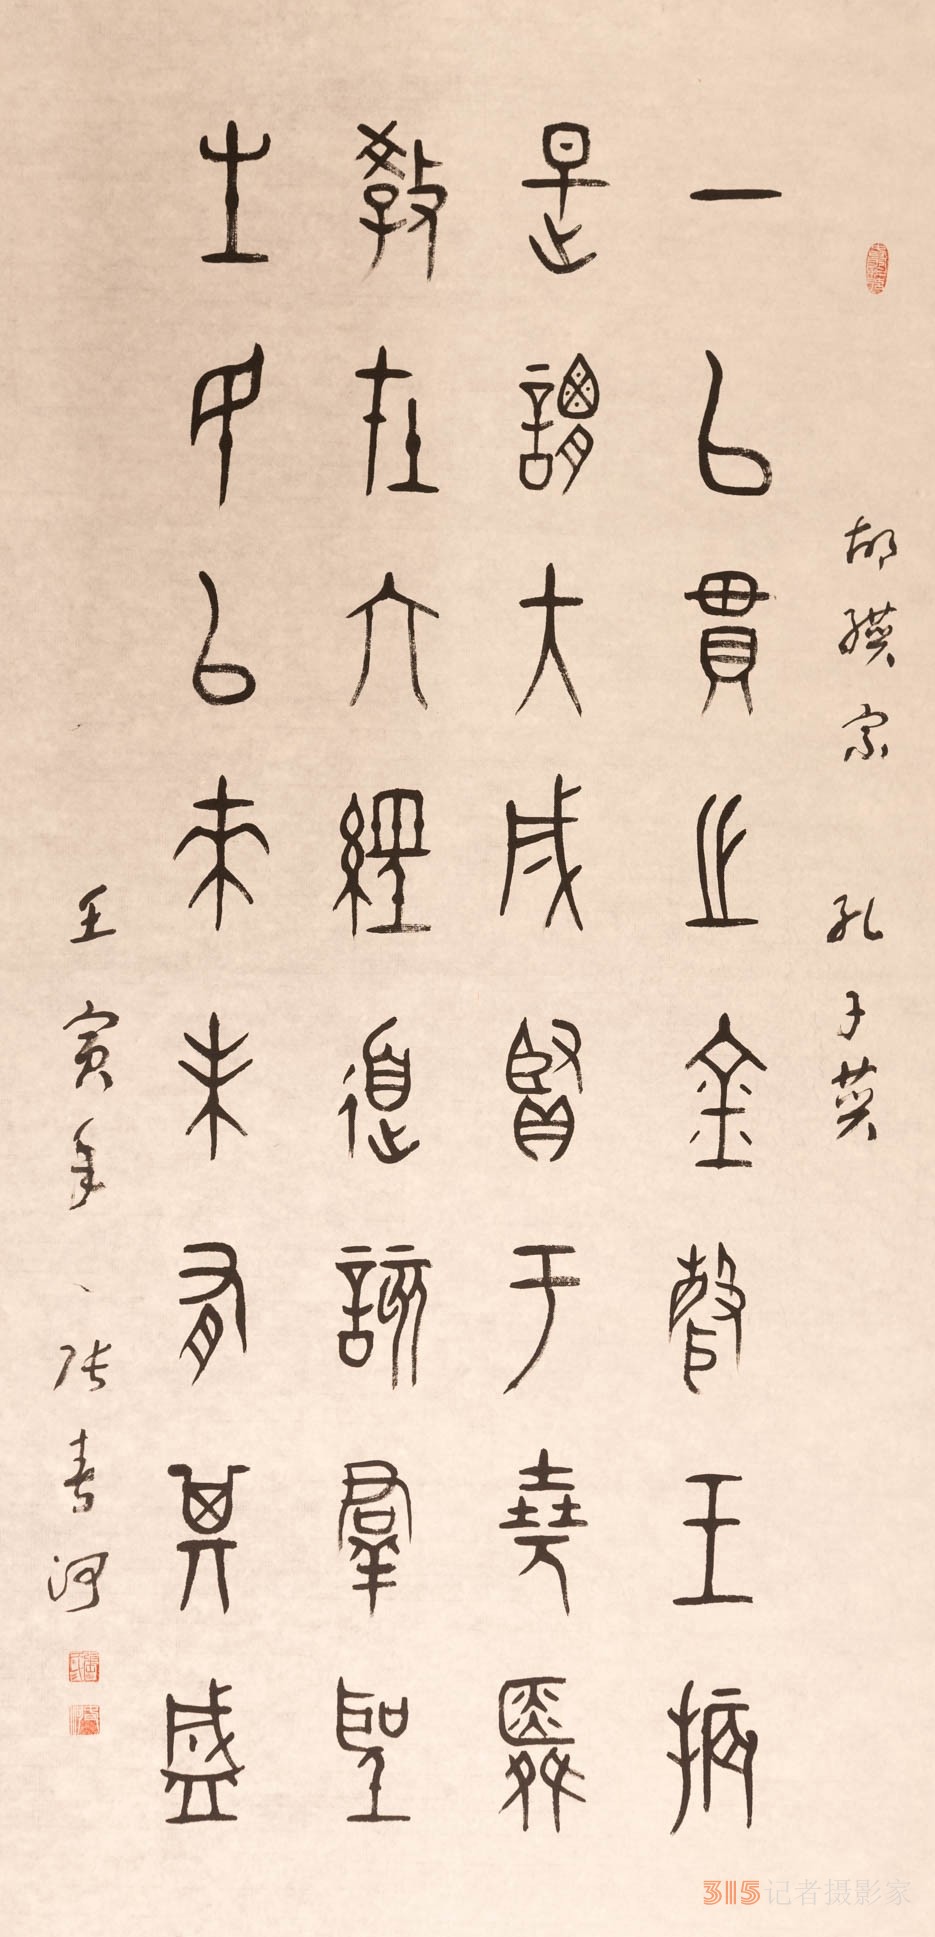 胡纘宗 孔子赞
一以貫之金聲玉振
是謂大成賢于堯舜
教在六經道該羣聖
生民以來未有其盛
壬寅年 张春河
315记者摄影家